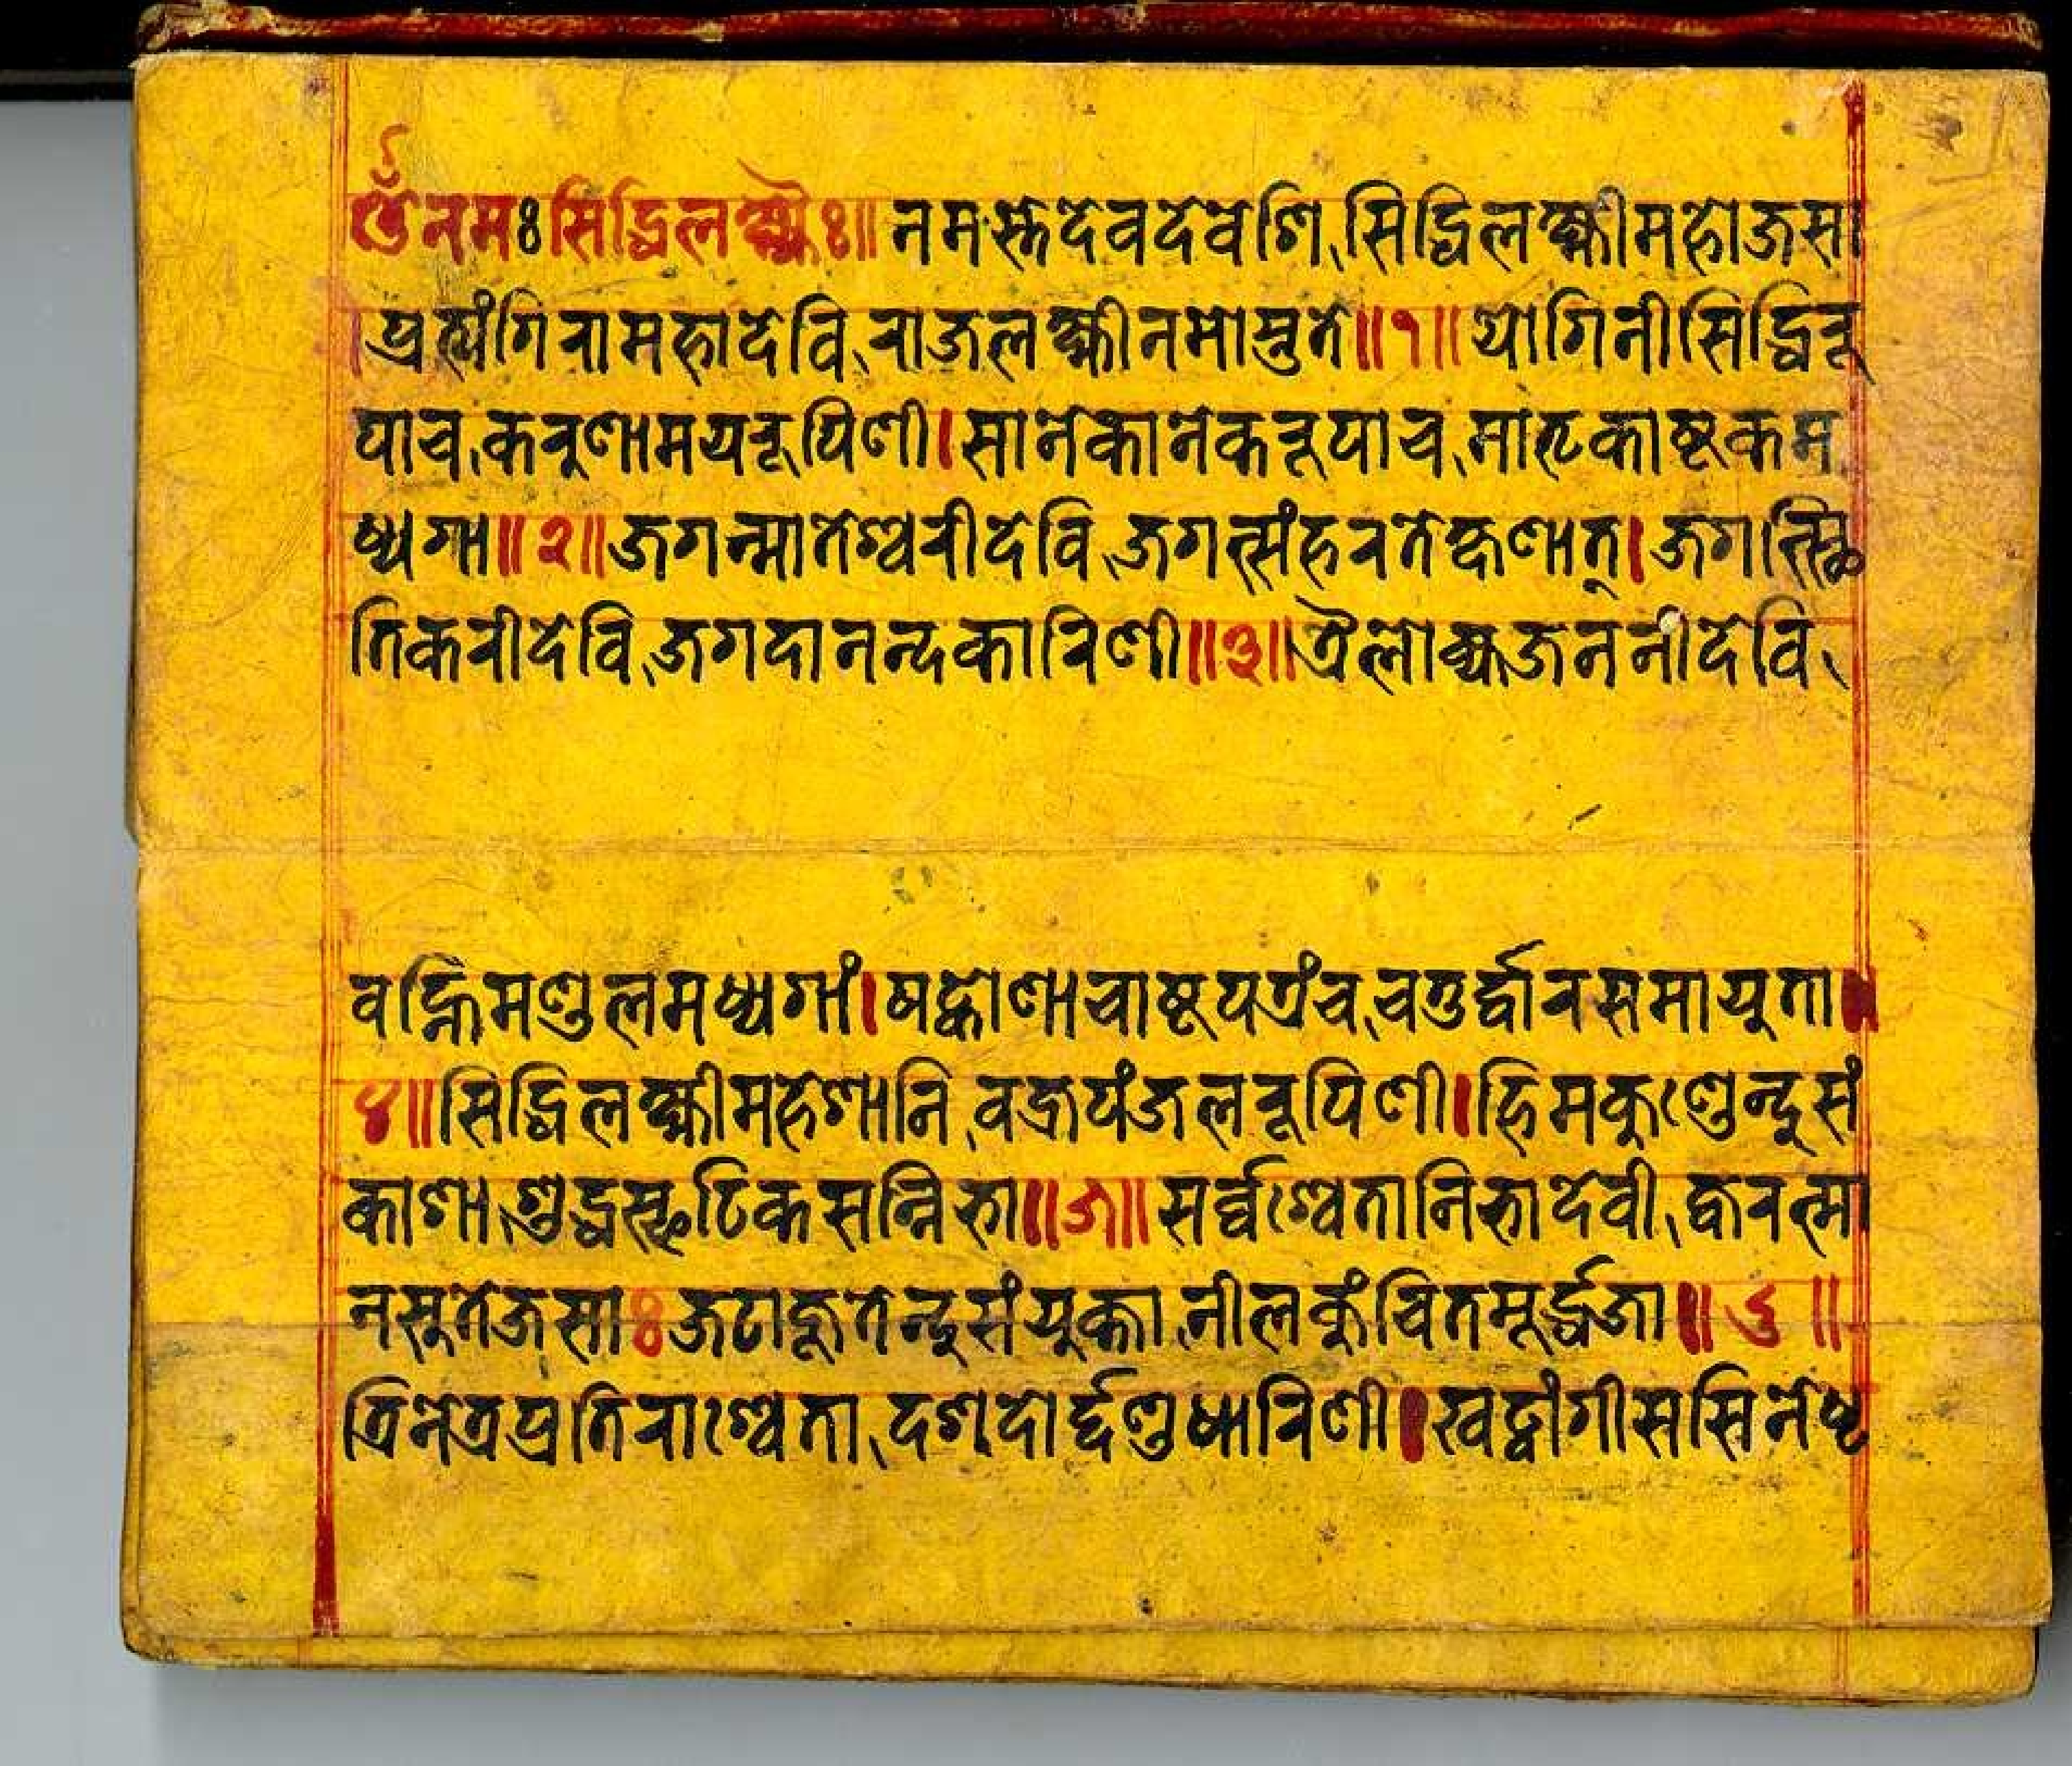 ॐ नमः सिद्धिलक्ष्म्यैः॥ नमस्तेदेवदेवेशि, सिद्धिलक्ष्मीमहोजसा
।प्रत्यंगिरामहादेवि, राजलक्ष्मीनमोस्तुते॥१॥ योगिनीसिद्धिरू
पाच, करुणामयरूपिणी। सानेकानेकरूपाच, मातृकाष्टकम
ध्यगा॥२॥ जगन्मातेश्वरीदेवि, जगत्संहरतेक्षणात्। जगत्स्थि
तिकरीदेवि, जगदानन्दकारिणी॥३॥ त्रैलोक्यजननीदेवि,
वह्निमण्डलमध्यगां। षट्कोणाचाष्टपत्रंच, चतुर्द्वारसमायुता॥
४॥ सिद्धिलक्ष्मीमहेशानि, वज्रपंजलरूपिणी। हिमकुण्डेन्दुसं
काशा, शुद्धस्फटिकसन्निभा॥५॥ सर्व्वश्वेतानिभादेवी, क्षरत्मा
नसुतेजसाः जटाजूतेन्दुसंयुक्ता, नीलकुंचितमूर्द्धजा॥६॥
त्रिनेत्रप्रतिराश्वेता, दशदोर्द्दण्डधारिणी। खट्वांगीससिनेष्ट